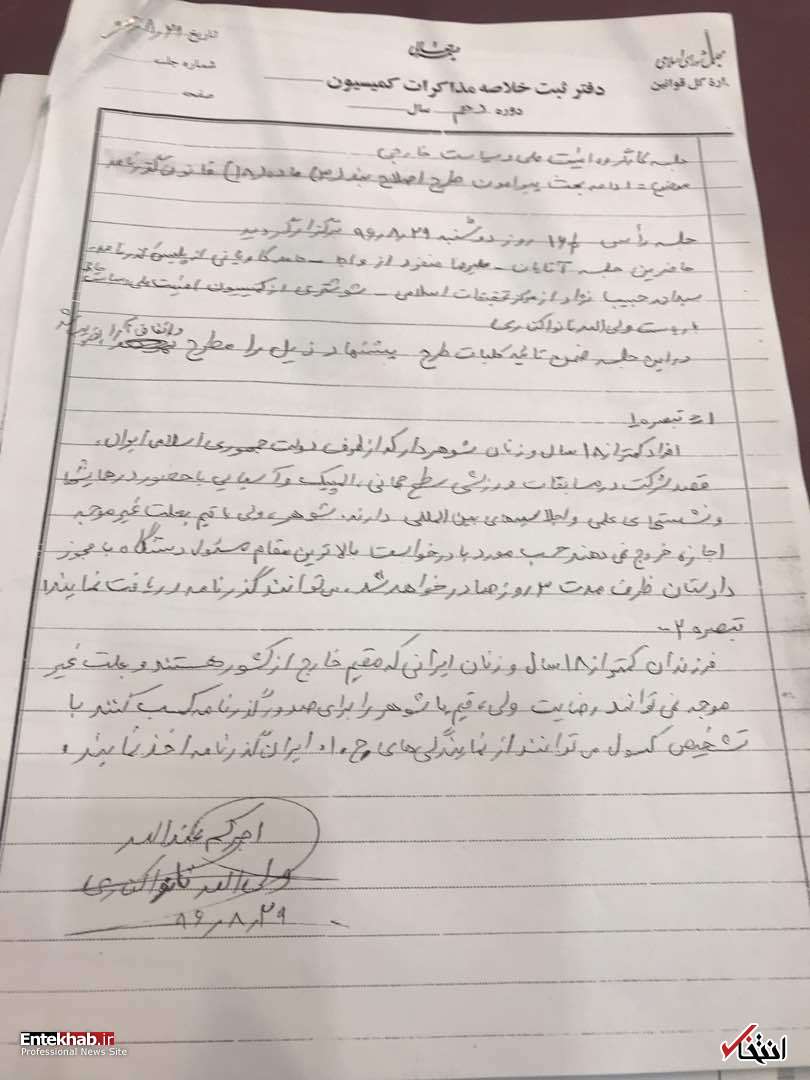 مجلس شورای اسلامی
اداره کل قوانین
بسمه تعالی
تاریخ
شماره جلسه
صفحه
دفتر ثبت خلاصه مذاکرات کمیسیون
دوره دهم سال
جلسه کارگروه امنیت ملی و سیاست خارجی
موضوع = ادامه بحث پیرامون طرح اصلاح بند (۳) ماده (۱۸) قانون گذرنامه
جلسه رأس ۱۶ روز دوشنبه ۹۶،۸،۲۹ برگزار گردید
حاضرین جلسه آقایان - علیرضا منفرد از واجا - کاویانی از پلیس گذرنامه
سبحانه حبیب نژاد از مرکز تحقیقات اسلامی - شوشتری از کمیسیون امنیت ملی و سیاست خارجی
(ریاست ولی الله نانواکناری)
در این جلسه ضمن تائید کلیات طرح پیشنهاد ذیل را مطرح و اتفاق آرا
تبصره ۱
افراد کمتر از ۱۸ سال و زنان شوهردار که از طرف دولت جمهوری اسلامی ایران،
قصد شرکت در مسابقات ورزشی سطح جهانی، المپیک و آسیایی یا حضور در همایش
و نشستهای علمی و اجلاسیه‌های بین المللی دارند. شوهر، ولی یا قیم بعلت غیر موجه
اجازه خروج نمی دهند حسب مورد با درخواست بالاترین مقام مسئول دستگاه با مجوز
دادستان ظرف مدت ۳ روز صادر خواهد شد. می توانند گذرنامه دریافت نمایند
تبصره ۲-
فرزندان کمتر از ۱۸ سال و زنان ایرانی که مقیم خارج از کشور هستند و بعلت غیر
موجه نمی توانند رضایت ولی، قیم یا شوهر را برای صدور گذرنامه کسب کنند با
تشخیص کنسول می توانند از نمایندگی های ج.ا. ایران گذرنامه اخذ نمایند.
اجرکم عندالله
ولی الله نانواکناری
۹۶،۸،۲۹
Entekhab.ir
Professional News Site
انتخاب